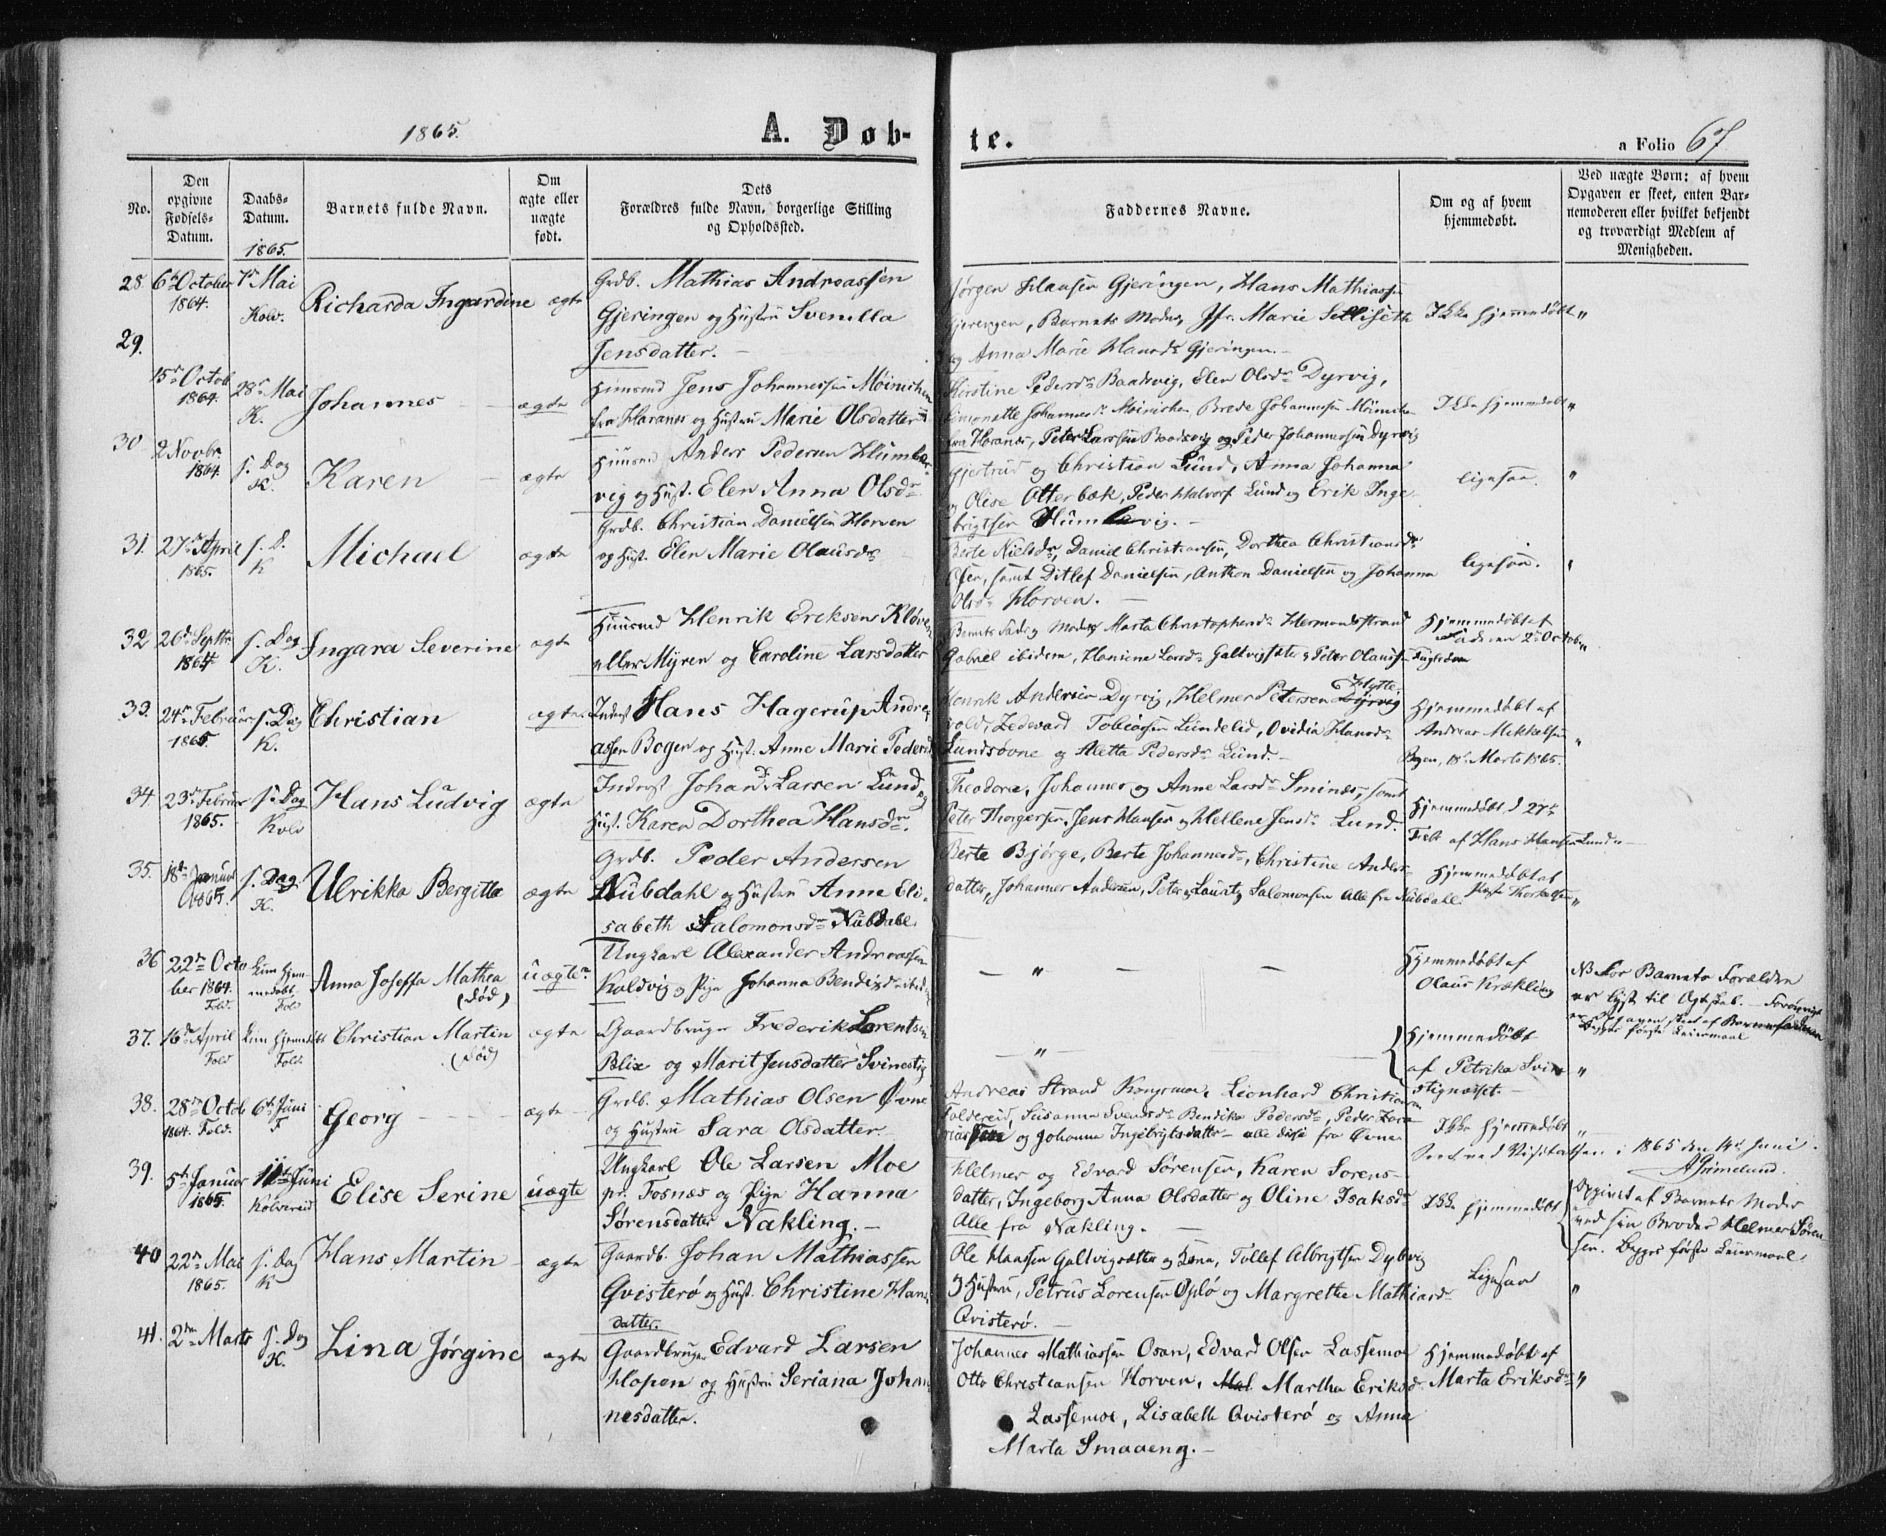 1865.
A. Døb-
te.
a Folio 67
No.
Den opgivne Fødsels-Datum.
Daabs-Datum.
1865.
Barnets fulde Navn.
Om ægte eller uægte født.
Dets
Forældres fulde Navn, borgerlige Stilling
og Opholdssted.
Faddernes Navne.
Om og af hvem
hjemmedøbt.
Ved uægte Børn: af hvem
Opgaven er skeet, enten Bar-
nemoderen eller hvilket bekjendt
og troværdigt Medlem af
Menigheden.
28. 6te October 1864. 7de Mai Kolv. Richarda Ingardine ægte
Grdb. Mathias Andreassen
Gjeringen og Hustru Svenilla
Jensdatter.
Jørgen Hansen Gjeringen, Hans Mathiass.
Gjeringen, Barnets Moder, Jfr. Marie Setliseth
og Anna Marie Hansd. Gjeringen.
Ikke hjemmedøbt "
29. 15de Octob 1864. 28de Mai K. Johannes ægte
Huusmd Jens Johannessen Møinichen
fra Horanes og Hustru Marie Olsdatter
Kirstine Pedersdr Baadsvig, Elen Olsdr Dyrvig,
Johannesdr Møinichen, Brede Johannesen Møinichen
fra Horanes, Peter Larssen Baadsvig og Peder Johannessen Dyrvig
Ikke hjemmedøbt "
30 2 Novbr. 1864. s. Dag K. Karen ægte
Huusmd Anders Pedersen Humlar-
vig og Hust. Elen Anna Olsdr
Gjertrud og Christian Lund, Anna Johanna
og Olise Otterbæk, Peder Halvorf Lund og Erik Inge-
brigtsen Humlavig.
ligesaa. "
31. 27de April 1865. s. D. K Michael ægte
Grdb. Christian Danielsen Horven
og Hust. Elen Marie Olausdr
Berte Nielsdr, Daniel Christiansen, Dorthea Christiansdr
Osen, samt Ditlef Danielsen, Anthon Danielsen og Johanna
Olsdr Horven.
ligesaa. "
32 26de Septbr. 1864 s. Dag K. Ingara Severine ægte
Huusmd Henrik Eriksens Kløven
eller Myren og Caroline Larsdatter
Barnets Fader og Moder, Marta Christophersdr Hermandsstrand
Gabriel ibidem, Hansine Larsdr Galtvigsæter og Peter Olaussen
Hjemmedøbt af
den 2de October
33. 24de Februar 1865. s. Dag K. Christian ægte
Inderst Hans Hagerup Andre-
assen Bogen og Hust. Anne Marie Pedersd.
Henrik Andersen Dyrvig, Helmer Petersen Dyrvig Hytte
vold, Zedevard Tobiassen Lundelid, Ovidia Hansdr
Lundsovne og Aletta Pedersdr Lund.
Hjemmedøbt af
Andreas Mikkelsen
Bogen, 18de Marts 1865. "
34 23de Februar 1865. s. Dag Kolv Hans Ludvig ægte
Inderst Johan Larsen Lund og
Hust. Karen Dorthea Hansdr.
Theodora, Johannes og Anne Larsdr Sminæs, samt
Peter Thorgersen, Jens Hansen og Hellene Jensdr Lund.
Hjemmedøbt d 27de
Feb. af Hans Hansen Lund
35. 18de Januar 1865. s. Dag. K. Ulrikka Bergitta ægte
Grdb. Peder Andersen
Nubdahl og Hustru Anne Eli-
sabeth Salomonsdr Nubdahl
Berte Bjørge, Berte Johannesdr, Christine Anders-
datter, Johannes Andersen, Peter og Lauritz Salomonsen alle fra Nubdahl
Hjemmedøbt af
Thorkelsen "
36 22de October 1864. Fold. Kun hjemmedøbt Fold Anna Joseffa Mathea (død) uægte
Ungkarl Alexander Andreassen
Koldvig og Pige Johanna Bendixdr ibid.
— " — —
Hjemmedøbt af
Olaus Krækling
NB For Barnets Forældre
er lyst til Ægteskab. Forøvrigt
er Opgaven skeet af Barnefaderen
Begges første Leiermaal
37. 16de April Fold Kun hjemmedøbt Fold. Christian Martin (død) ægte
Gaardbruger Frederik Lorentsen
Blix og Marit Jensdatter Svinestig
— " —
Hjemmedøbt
af Petrika Svine
stignæsset. "
38. 28de Octob 1864. Fold. 6te Juni F Georg ægte
Grdb. Mathias Olsen Øvne
og Hustru Sara Olsdatter
Andreas Strand Kongsmoe, Lionhard Christiansen
Foldereid, Susanna Svendsdr Bendika Pedersdr, Peder Zaca-
riassen og Johanna Ingebrigtsdatter alle disse fra Øvne
Ikke hjemmedøbt "
Seet ved Visitatsen i 1865 den 14de Juni.
AGrimelund.
39. 5te Januar 1865. 11te Juni Kolvereid Elise Serine uægte
Ungkarl Ole Larsen Moe
pr. Fosnæs og Pige Hanna
Sørensdatter Nakling.
Helmer og Edvard Sørensen, Karen Sørens-
datter, Ingeborg Anna Olsdatter og Oline Isaksdr
Alle fra Nakling.
Ikke hjemmedøbt
Opgivet af Barnets Moder
ved sin Broder Helmer Søren-
sen. Begges første Leiermaal.
40 22de Mai 1865. s. Dag K Hans Martin ægte
Gaardb. Johan Mathiassen
Qvisterø og Hust. Christine Hans-
datter.
Ole Hansen Galtvigsætter og Kona, Tollef Albrigtsen Dybvig
og Hustru, Petrus Lorensen Oplø og Margrethe Mathiasdr
Qvisterø.
Ligesaa "
41. 2den Marts s. Dag K. Lina Jørgine ægte
Gaardbruger Edvard Larsen
Hopen og Hustru Seriana Johan-
nesdatter.
Johannes Mathiassen Osan, Edvard Olsen Lassemoe
Otto Christiansen Horven, Martha Eriksd.
Lassemoe, Lisabeth Qvisterø og Anna
Marta Smaaeng.
Hjemmedøbt af
Marta Eriksdr "